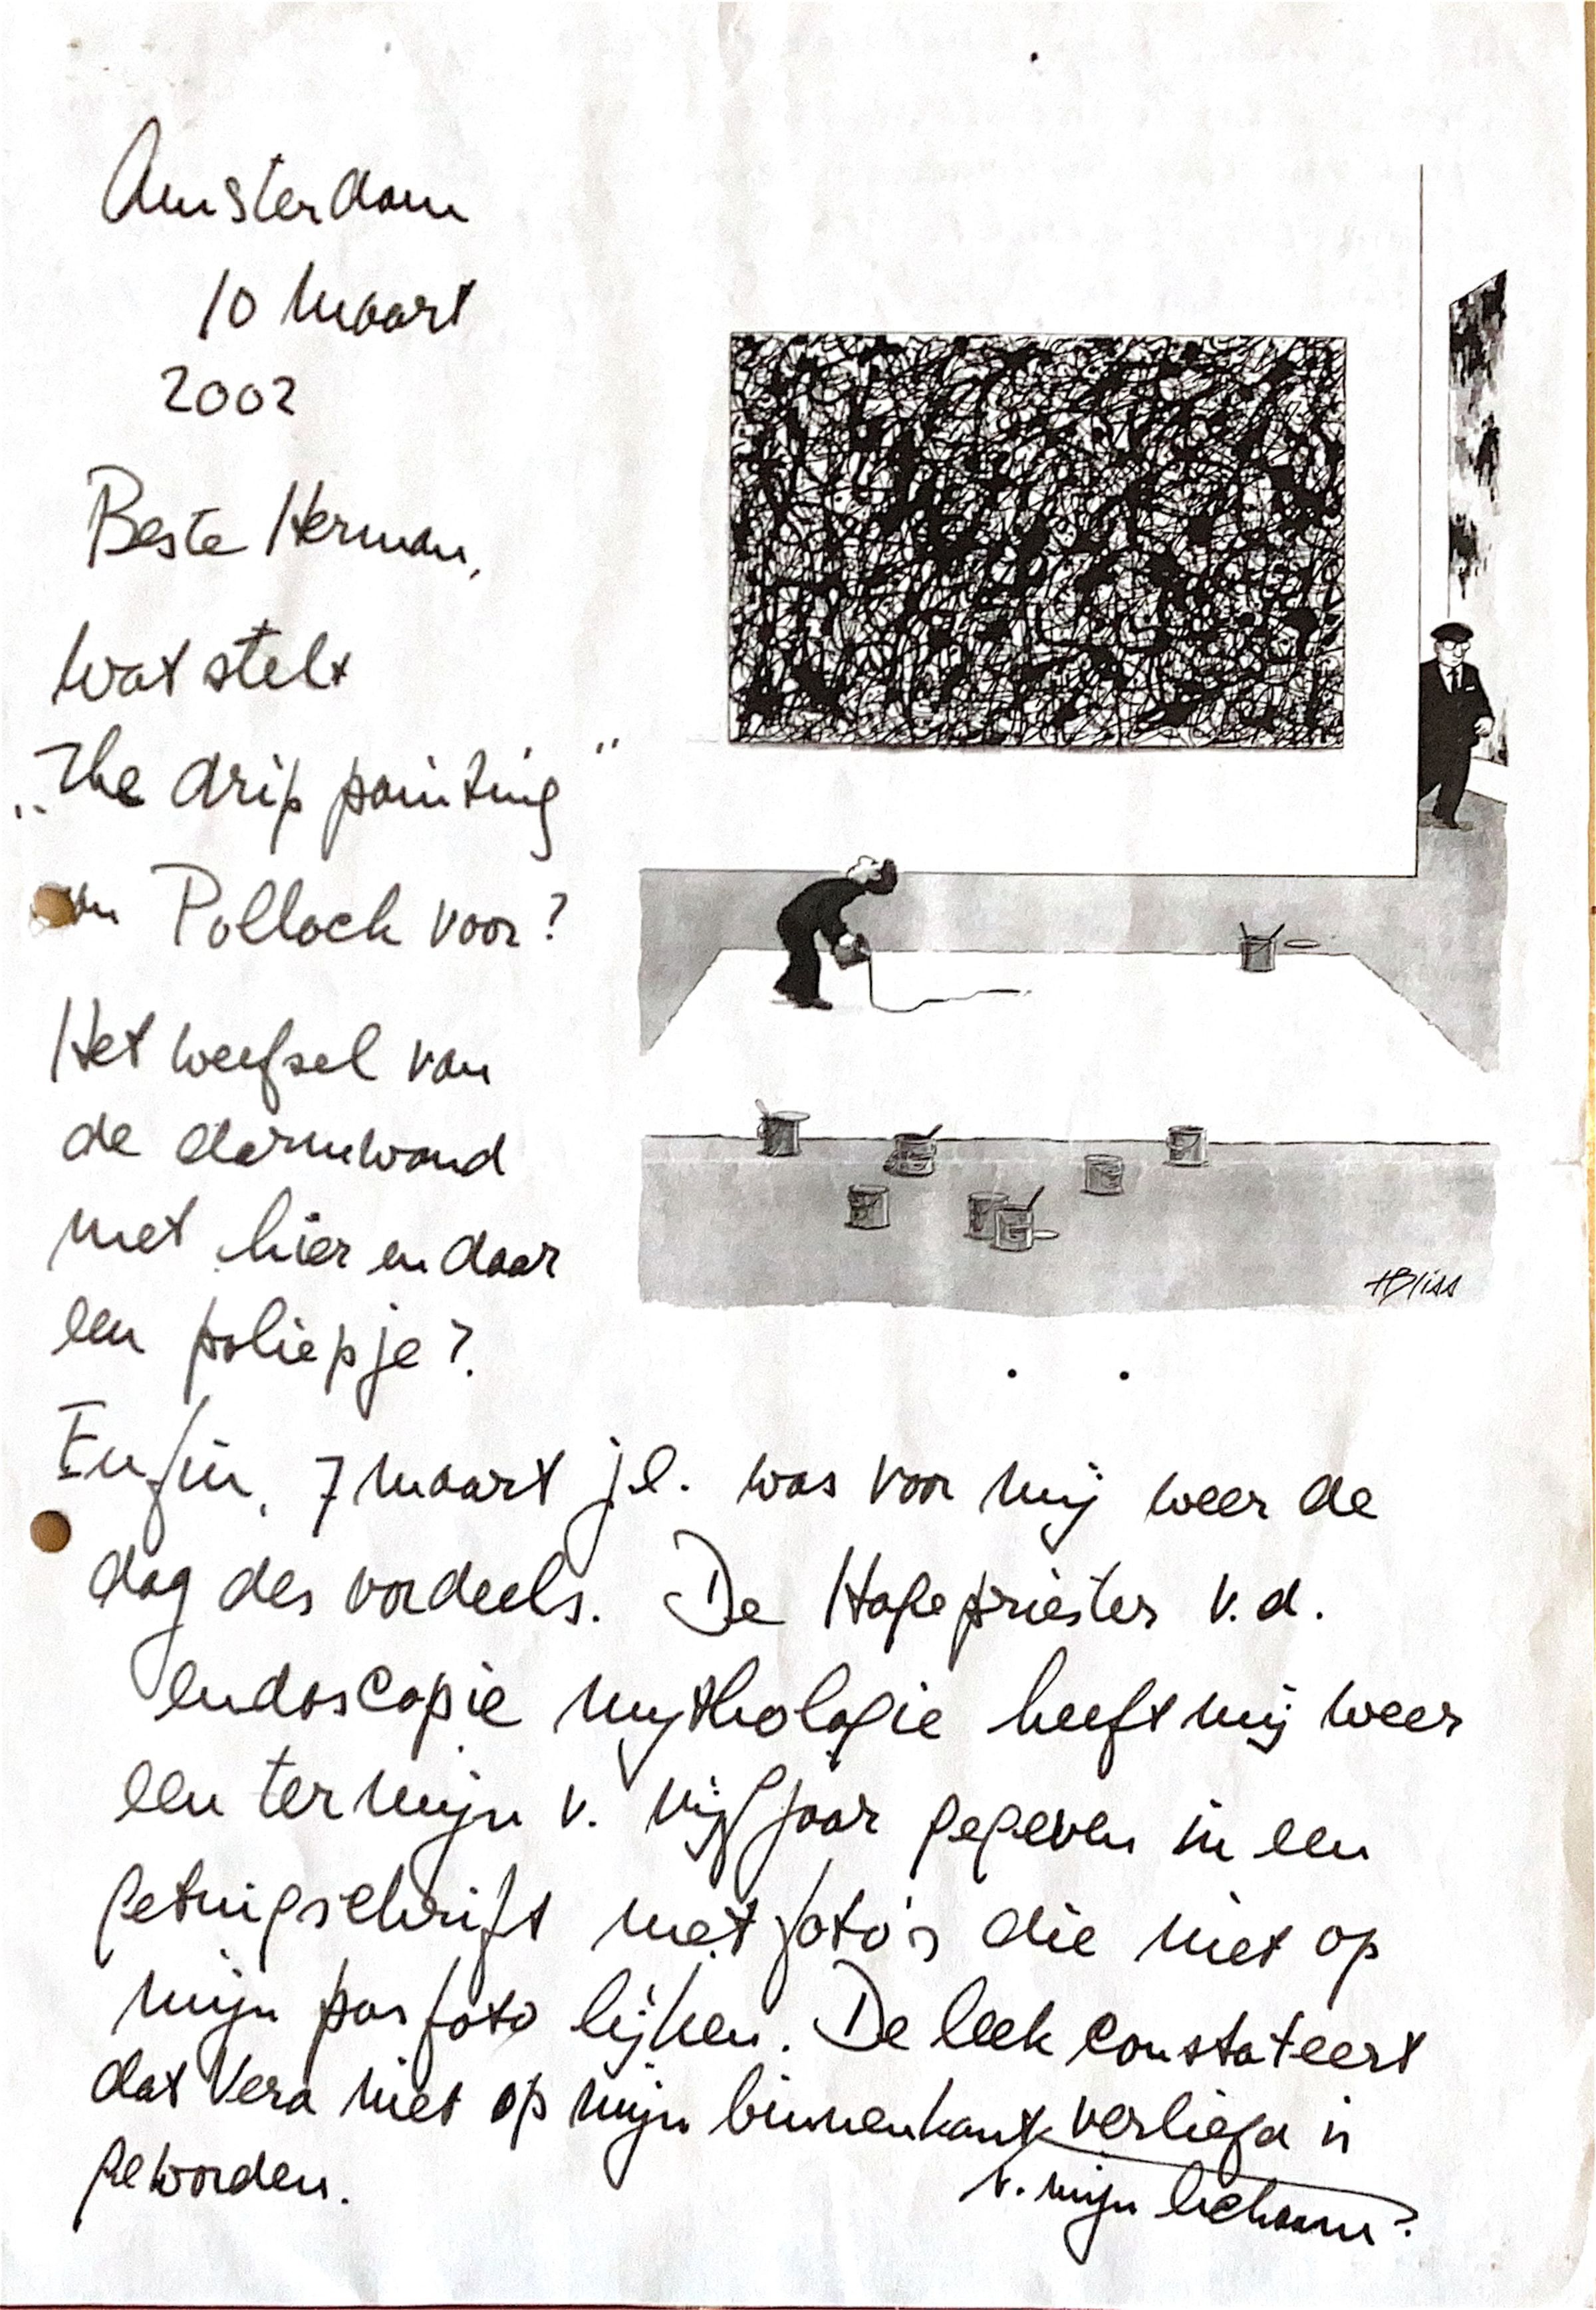 Amsterdam
10 maart
2002
Beste Herman,
wat stelt
„The drip painting"
van Pollock voor?
Het weefsel van
de darmwand
met hier en daar
een poliepje?
HBliss
Enfin, 7 maart jl. was voor mij weer de
dag des oordeels. De Hogepriester v.d.
endoscopie mythologie heeft mij weer
een termijn v. vijf jaar gegeven in een
getuigschrift met foto's die niet op
mijn pasfoto lijken. De leek constateert
dat Vera niet op mijn binnenkant verliefd is
geworden.
v. mijn lichaam?